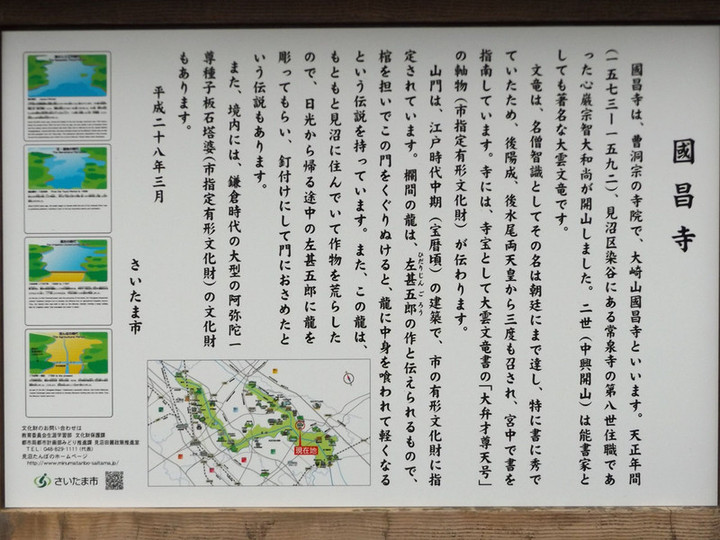 國昌寺
國昌寺は、曹洞宗の寺院で、大崎山國昌寺といいます。天正年間
(一五七三―一五九二)、見沼区染谷にある常泉寺の第八世住職であ
った心巌宗智大和尚が開山しました。二世(中興開山)は能書家と
しても著名な大雲文竜です。
文竜は、名僧智識としてその名は朝廷にまで達し、特に書に秀で
ていたため、後陽成、後水尾両天皇から三度も召され、宮中で書を
指南しています。寺には、寺宝として大雲文竜書の「大弁才尊天号」
の軸物(市指定有形文化財)が伝わります。
山門は、江戸時代中期(宝暦頃)の建築で、市の有形文化財に指
定されています。欄間の龍は、左甚五郎の作と伝えられるもので、
ひだりじんごろう
棺を担いでこの門をくぐりぬけると、龍に中身を喰われて軽くなる
という伝説を持っています。また、この龍は、
もともと見沼に住んでいて作物を荒らした
ので、日光から帰る途中の左甚五郎に龍を
彫ってもらい、釘付けにして門におさめたと
いう伝説もあります。
また、境内には、鎌倉時代の大型の阿弥陀一
尊種子板石塔婆(市指定有形文化財)の文化財
もあります。
平成二十八年三月
さいたま市
現在地
文化財のお問い合わせは
教育委員会生涯学習部 文化財保護課
都市局都市計画部みどり推進課 見沼田圃政策推進室
TEL:048-829-1111(代表)
見沼たんぼのホームページ
http://www.minumatanbo-saitama.jp/
さいたま市